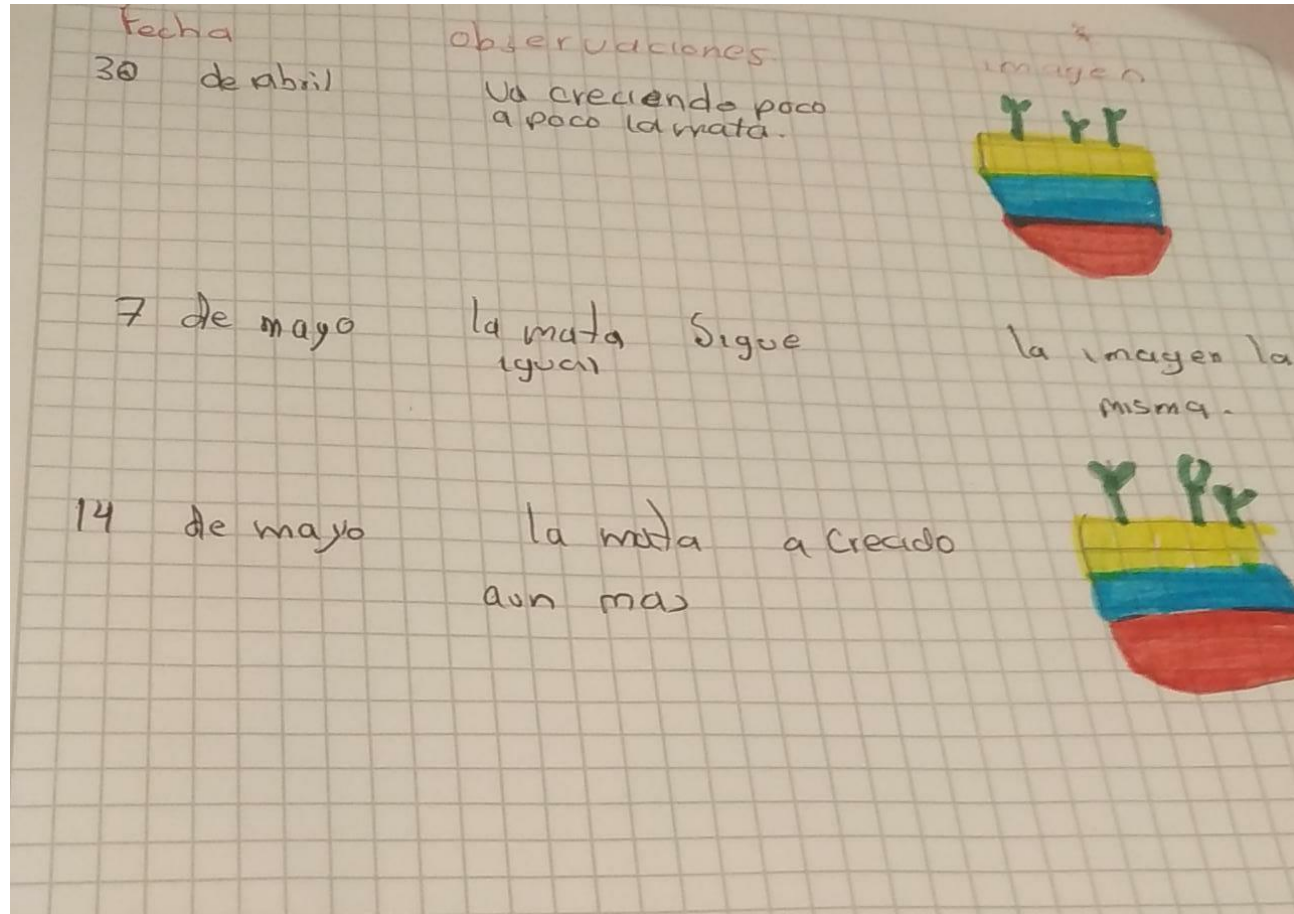 fecha observaciones imagen
30 de abril Va creciendo poco
a poco la mata.
7 de mayo la mata Sigue
igual
la imagen la
misma.
14 de mayo la mata a crecido
aun mas